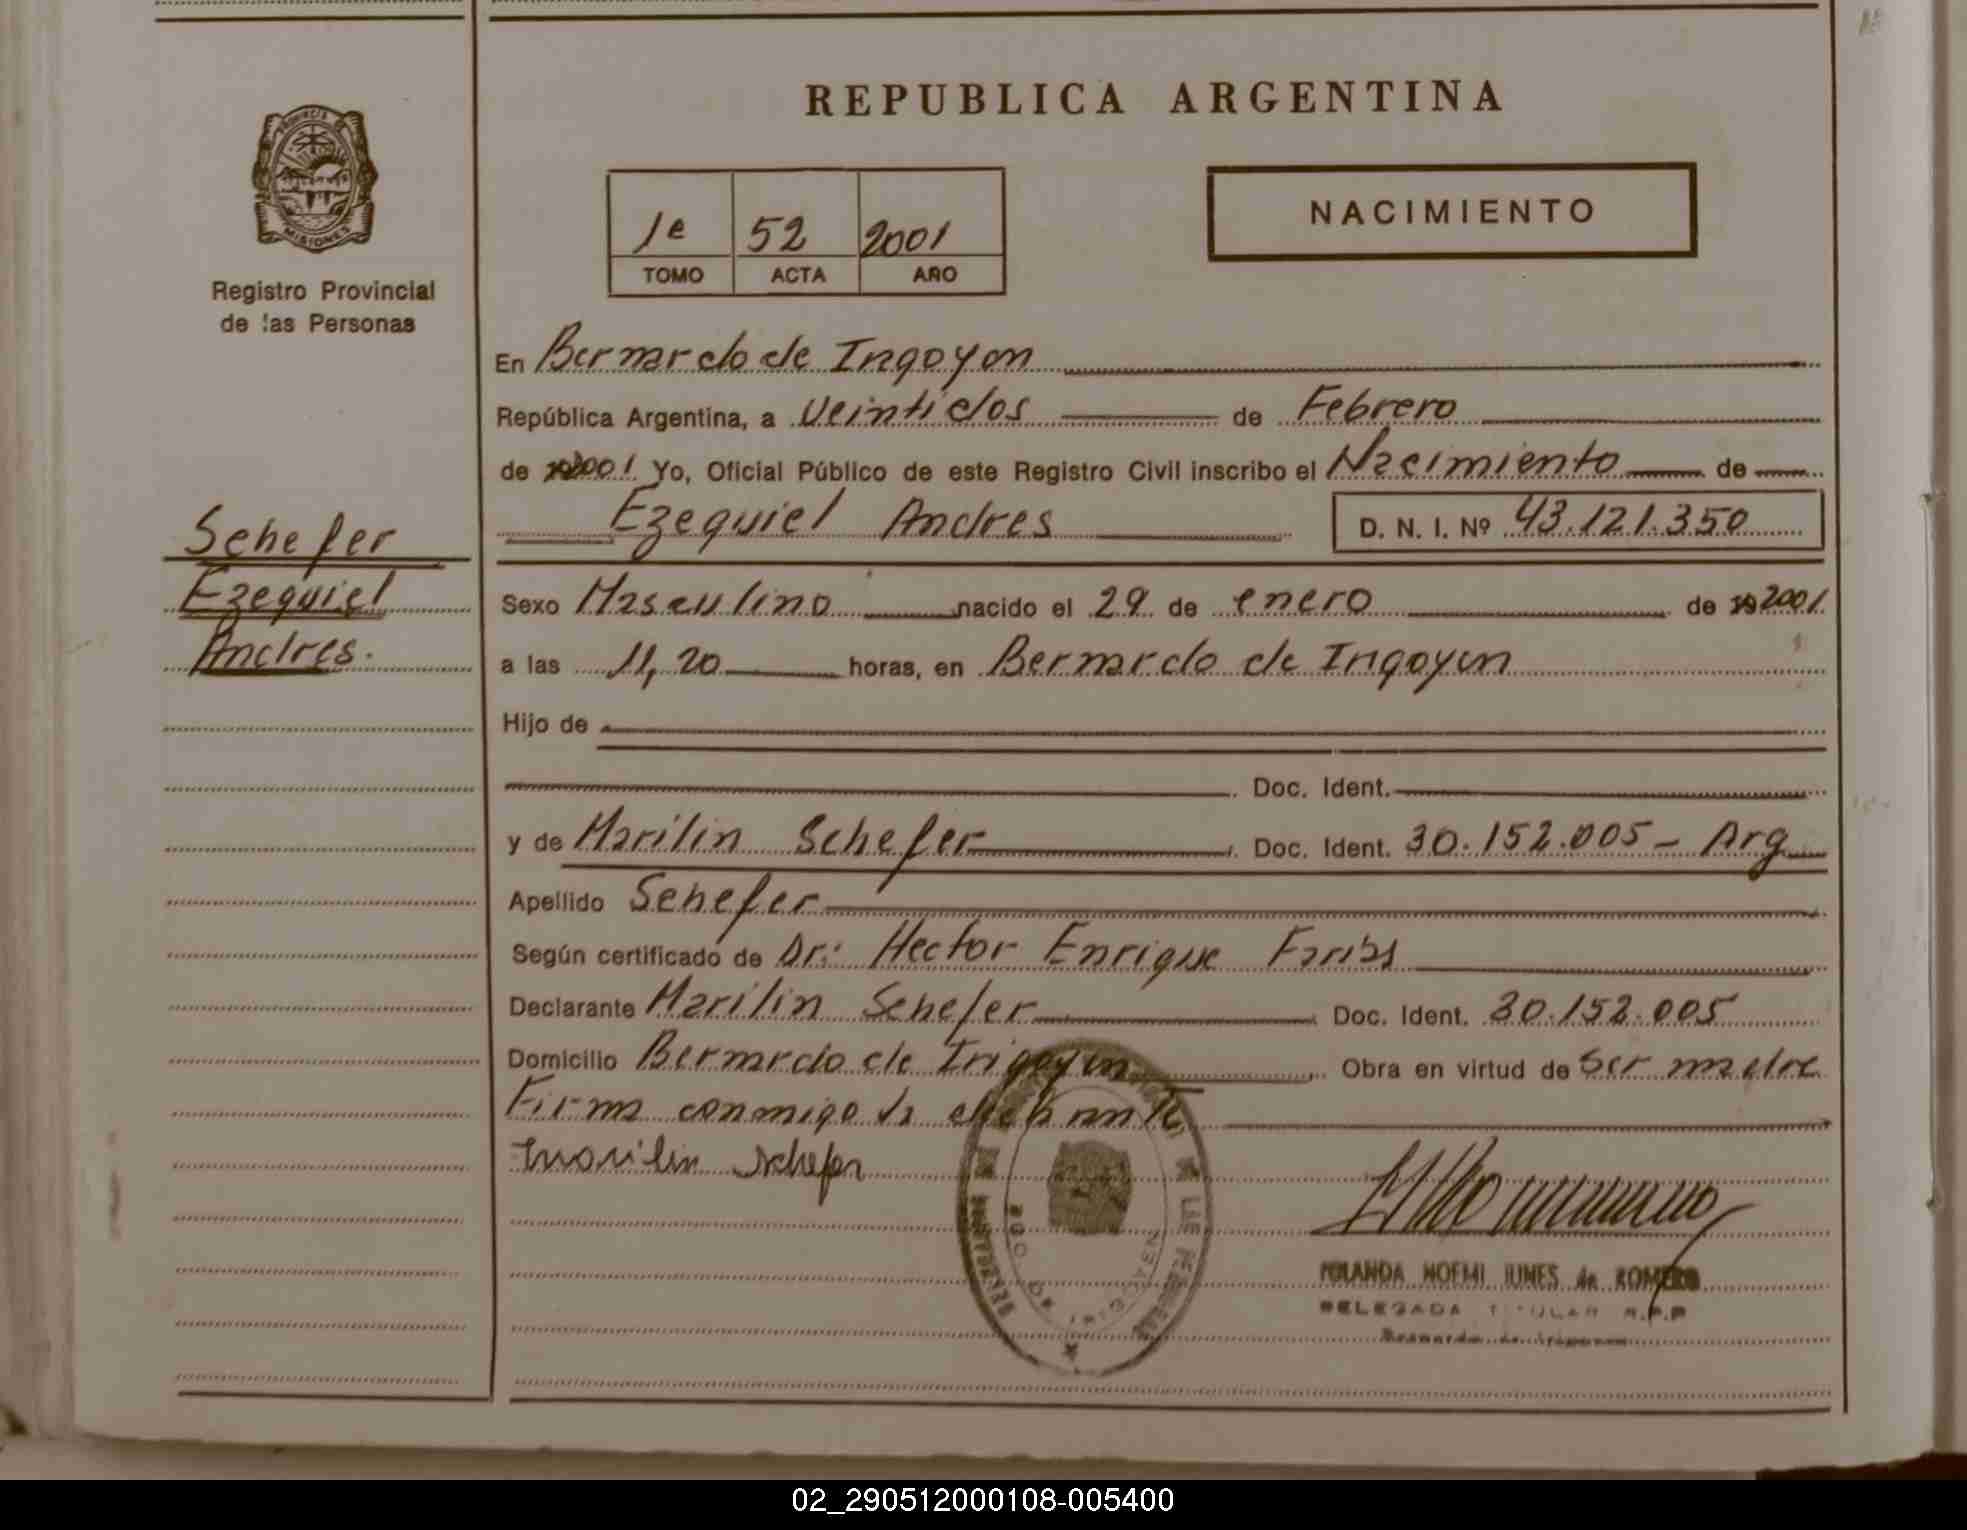 REPUBLICA ARGENTINA
PROVINCIA DE
MISIONES
Registro Provincial
de las Personas
1e 52 2001
TOMO ACTA AÑO
NACIMIENTO
En Bernardo de Irigoyen
República Argentina, a veintidos de Febrero
de 2001 Yo, Oficial Público de este Registro Civil inscribo el Nacimiento de
Ezequiel Andres D. N. I. Nº 43.121.350
Schefer
Ezequiel
Andres.
Sexo Masculino nacido el 29 de enero de 2001
a las 11,20 horas, en Bernardo de Irigoyen
Hijo de
Doc. Ident.
y de Marilin Schefer Doc. Ident. 30.152.005 - Arg
Apellido Schefer
Según certificado de Dr: Hector Enrique Farias
Declarante Marilin Schefer Doc. Ident. 30.152.005
Domicilio Bernardo de Irigoyen Obra en virtud de ser madre
Firma conmigo la
Marilin Schefer
YOLANDA NOEMI IUNES de ROMERO
DELEGADA TITULAR R.P.P
Bernardo de Irigoyen
02_290512000108-005400